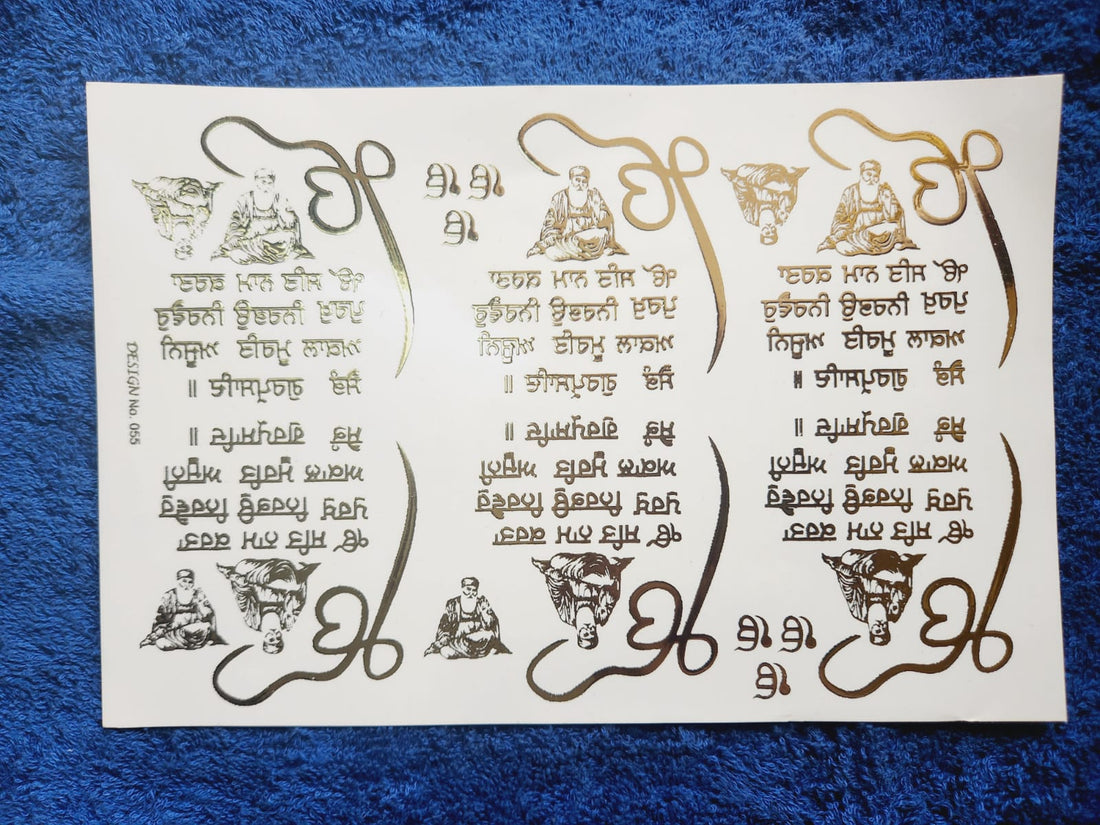 ੴ
ੴ ਸਤਿ ਨਾਮ ਕਰਤਾ
ਪੁਰਖੁ ਨਿਰਭਉ ਨਿਰਵੈਰੁ
ਅਕਾਲ ਮੂਰਤਿ ਅਜੂਨੀ
ਸੈਭੰ ਗੁਰਪ੍ਰਸਾਦਿ ॥
ੴ ੴ
ੴ
ੴ
ੴ ਸਤਿ ਨਾਮ ਕਰਤਾ
ਪੁਰਖੁ ਨਿਰਭਉ ਨਿਰਵੈਰੁ
ਅਕਾਲ ਮੂਰਤਿ ਅਜੂਨੀ
ਸੈਭੰ ਗੁਰਪ੍ਰਸਾਦਿ ॥
ੴ
ੴ ਸਤਿ ਨਾਮ ਕਰਤਾ
ਪੁਰਖੁ ਨਿਰਭਉ ਨਿਰਵੈਰੁ
ਅਕਾਲ ਮੂਰਤਿ ਅਜੂਨੀ
ਸੈਭੰ ਗੁਰਪ੍ਰਸਾਦਿ ॥
DESIGN No. 055
ੴ
ੴ ਸਤਿ ਨਾਮ ਕਰਤਾ
ਪੁਰਖੁ ਨਿਰਭਉ ਨਿਰਵੈਰੁ
ਅਕਾਲ ਮੂਰਤਿ ਅਜੂਨੀ
ਸੈਭੰ ਗੁਰਪ੍ਰਸਾਦਿ ॥
ੴ
ੴ ਸਤਿ ਨਾਮ ਕਰਤਾ
ਪੁਰਖੁ ਨਿਰਭਉ ਨਿਰਵੈਰੁ
ਅਕਾਲ ਮੂਰਤਿ ਅਜੂਨੀ
ਸੈਭੰ ਗੁਰਪ੍ਰਸਾਦਿ ॥
ੴ ੴ
ੴ
ੴ
ੴ ਸਤਿ ਨਾਮ ਕਰਤਾ
ਪੁਰਖੁ ਨਿਰਭਉ ਨਿਰਵੈਰੁ
ਅਕਾਲ ਮੂਰਤਿ ਅਜੂਨੀ
ਸੈਭੰ ਗੁਰਪ੍ਰਸਾਦਿ ॥